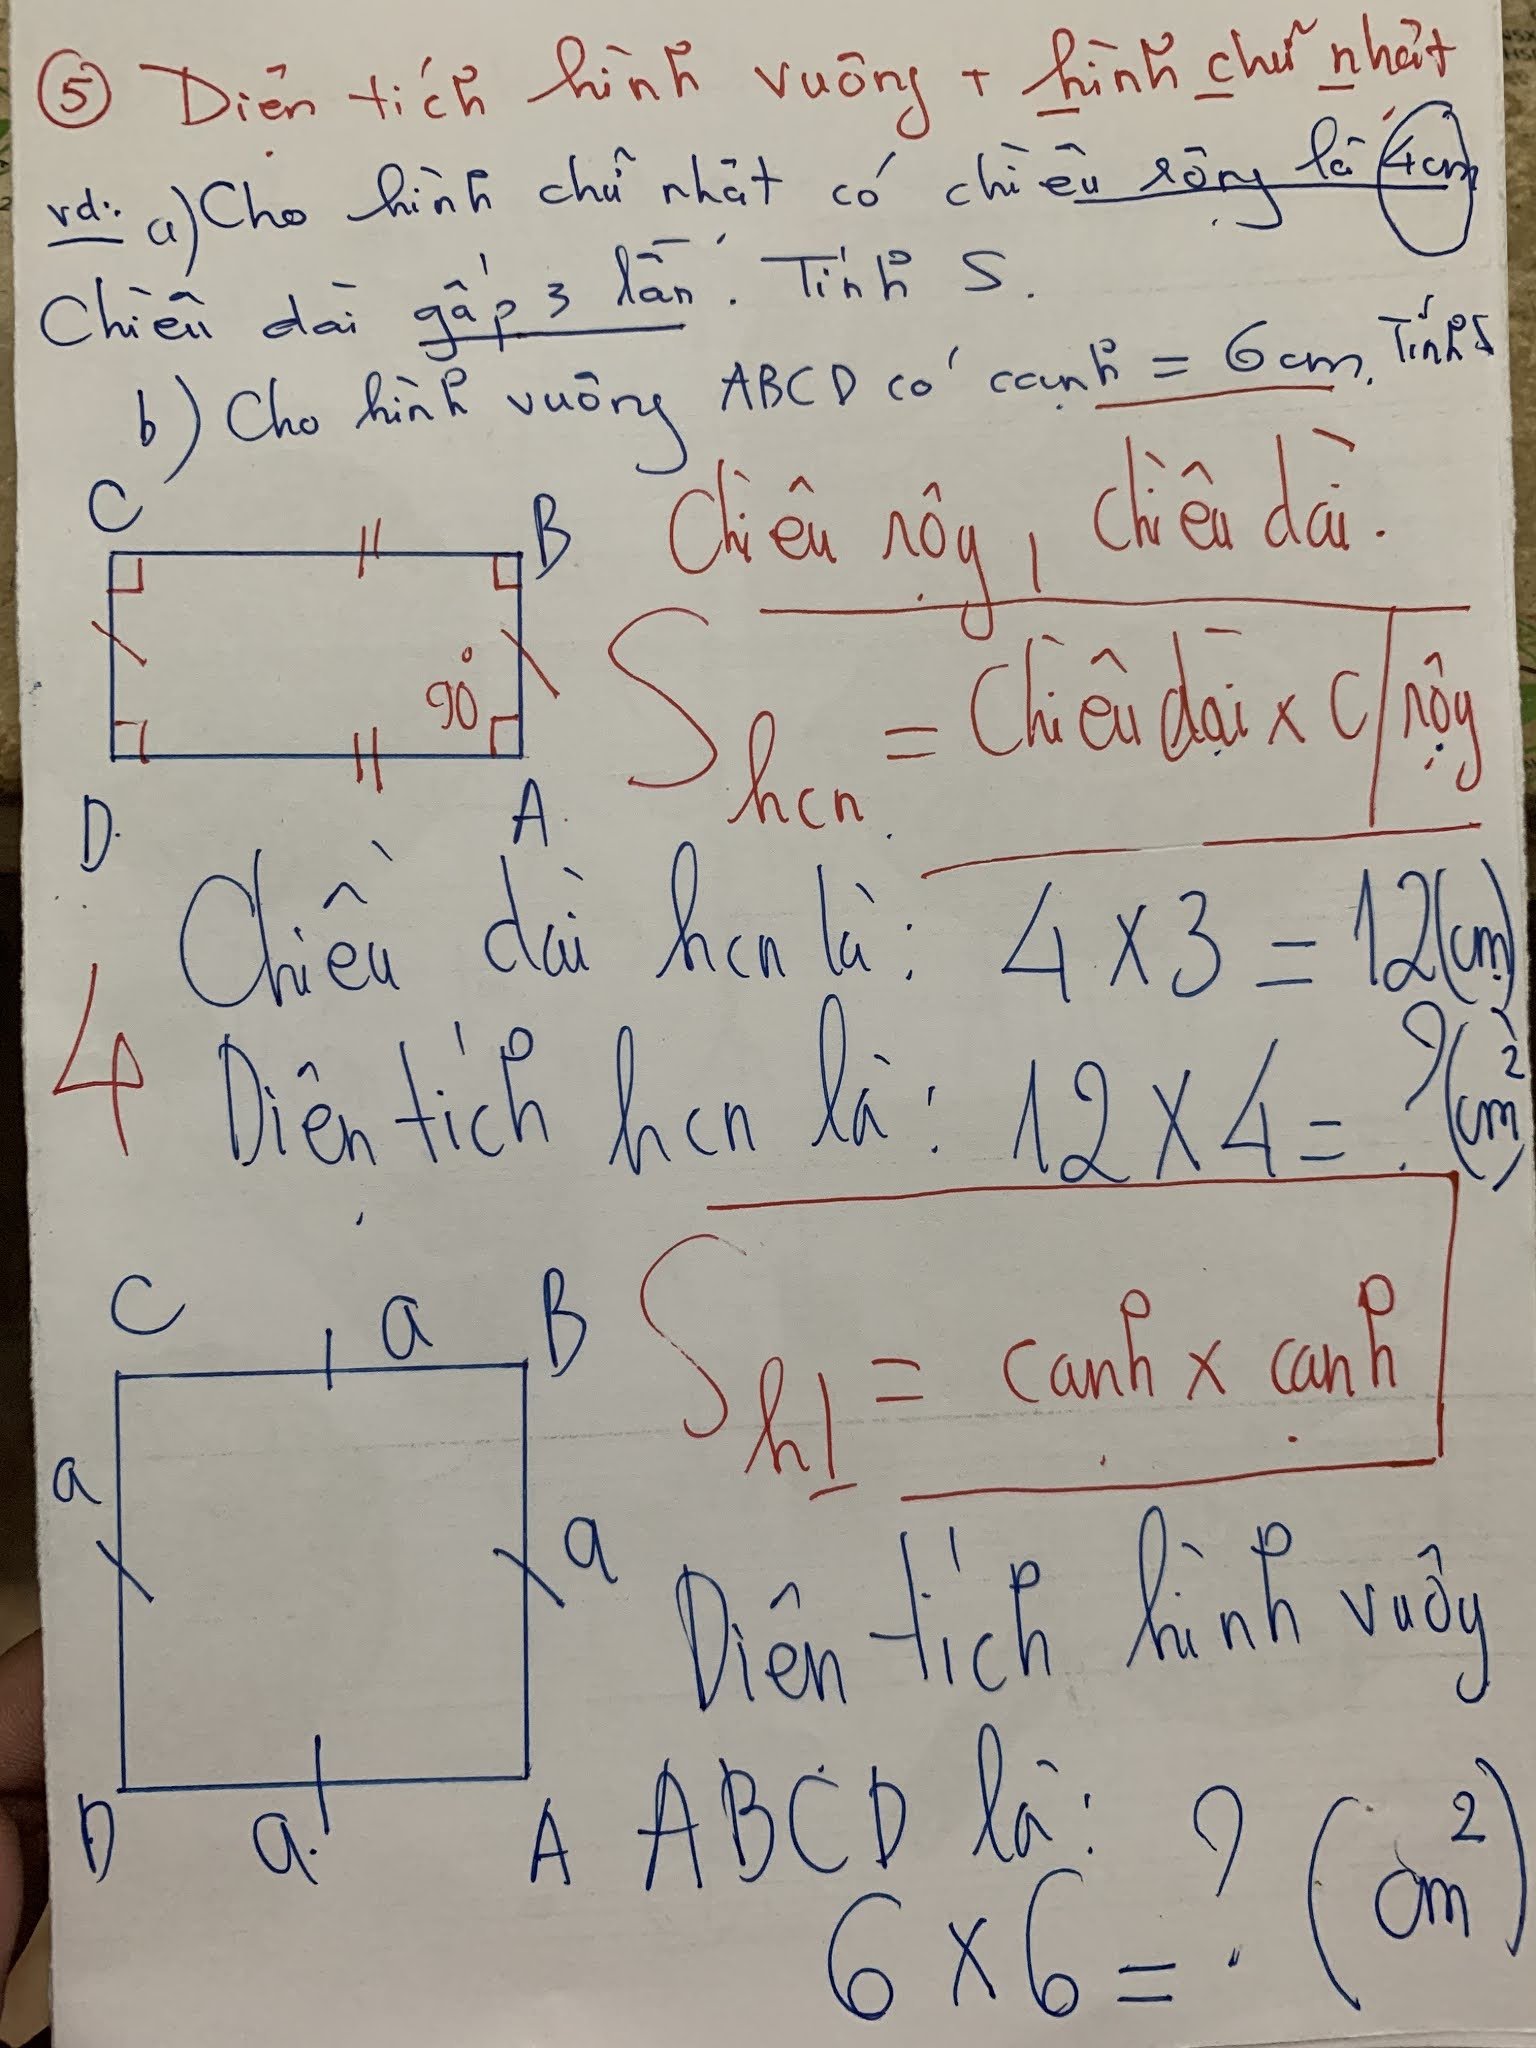 ⑤ Diện tích hình vuông + hình chữ nhật
vd: a) Cho hình chữ nhật có chiều rộng là 4cm
Chiều dài gấp 3 lần. Tính S.
b) Cho hình vuông ABCD có cạnh = 6cm. Tính S
C
B
Chiều rộng, chiều dài.
90°
S hcn = Chiều dài x C/rộng
D
A
Chiều dài hcn là: 4 x 3 = 12(cm)
4
Diện tích hcn là: 12 x 4 = ? (cm²)
C
a
B
= cạnh x cạnh
a
a
Diện tích hình vuông
D
a
A
ABCD là:
6 x 6 = ? (cm²)